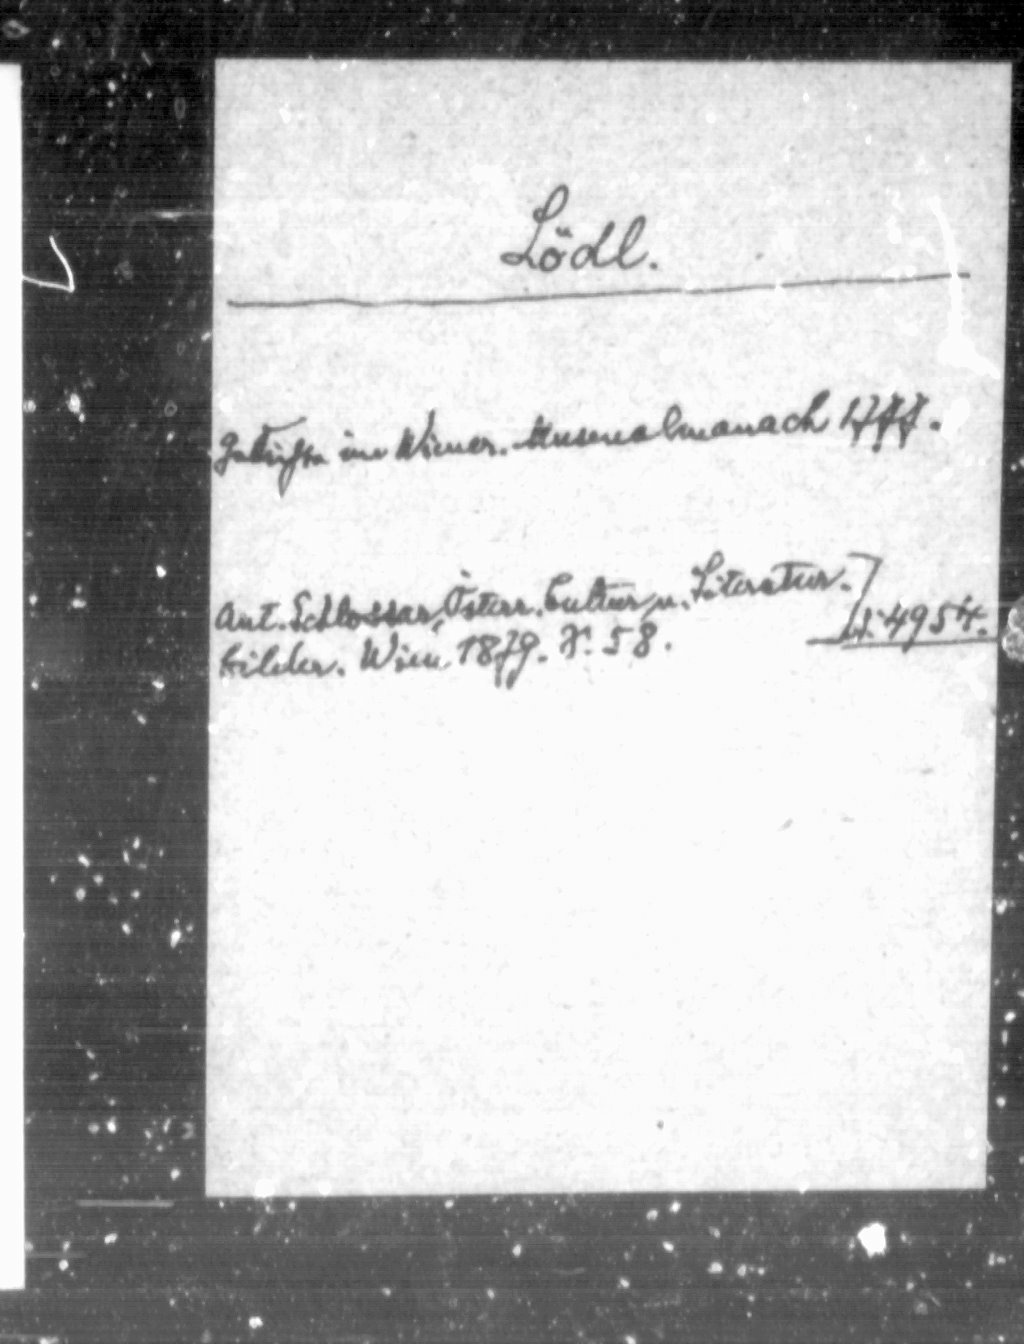 Lödl.
Gedichte im Wiener. Musenalmanach 1777.
Ant. Schlossar, Österr. Cultur u. Literatur.
bilder. Wien 1879. S. 58.
4954.